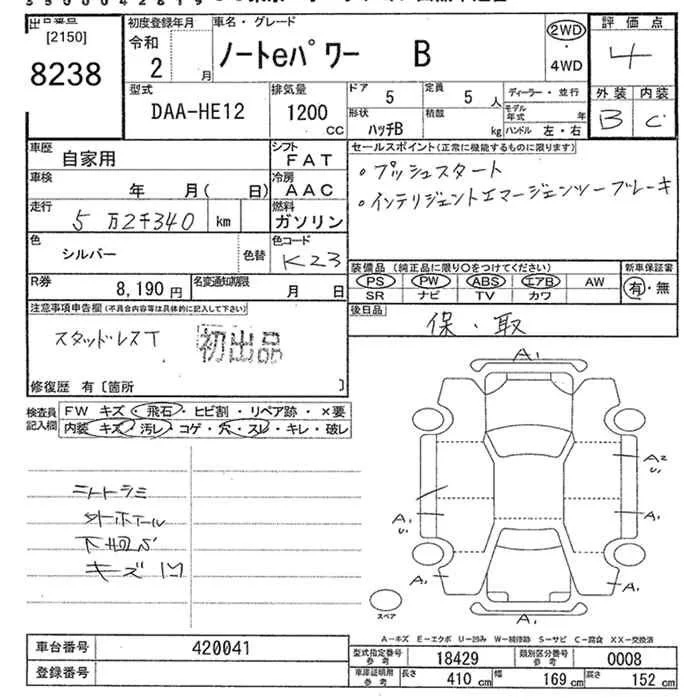 出品番号
[2150]
8238
初度登録年月
令和
2 月
車名・グレード
ノートeパワー B
2WD
・
4WD
評価点
4
外装 内装
B C
型式
DAA-HE12
排気量
1200
CC
ドア 5
定員 5 人
形状
ハッチB
積載 kg
ディーラー・並行
モデル年式 年
ハンドル 左・右
車歴
自家用
シフト
FAT
車検 年 月( 日)
冷房
AAC
走行 5万2千340 km
燃料
ガソリン
色 シルバー 色替
色コード
K23
R券 8,190 円
名変通知期限 月 日
セールスポイント(正常に機能するものに限ります)
・プッシュスタート
・インテリジェントエマージェンシーブレーキ
装備品 (純正品に限り○をつけてください)
PS PW ABS エアB AW
SR ナビ TV カワ
新車保証書
有・無
後日品
保・取
注意事項申告欄(不具合内容等は具体的に記入して下さい)
スタッドレスT
初出品
修復歴 有〔箇所 〕
検査員記入欄
FW キズ・飛石・ヒビ割・リペア跡・×要
内装 キズ・汚レ・コゲ・穴・スレ・キレ・破レ
外ホイール
キズ凹
A1
A2
U1
A1
U1
A1
A1
A1
A1
スペア
A-キズ E-エクボ U-凹み W-補修跡 S-サビ C-腐食 XX-交換済
車台番号 420041
登録番号
型式指定番号
参考
18429
類別区分番号
参考
0008
車庫証明用
参考
長さ 410 cm
幅 169 cm
高さ 152 cm